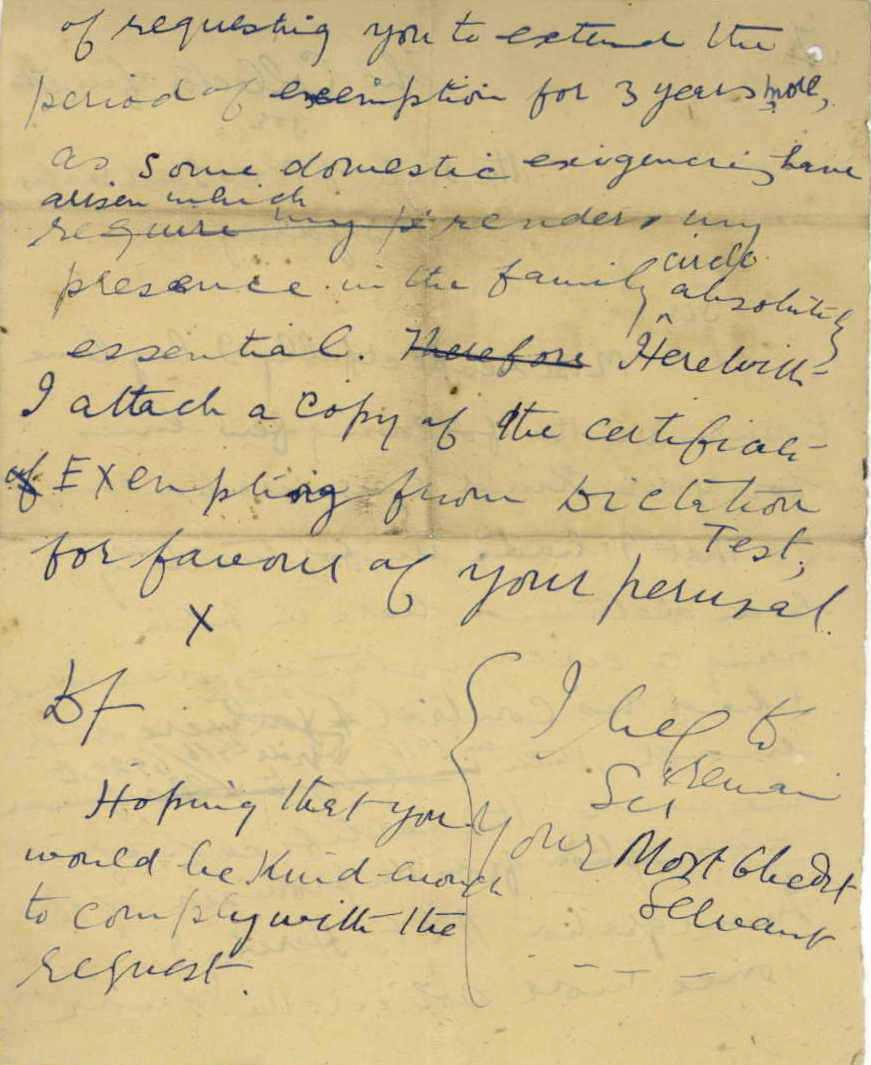 of requesting you to extend the
period of exemption for 3 years more,
as some domestic exigencies have
arisen which
require my p renders my
presence in the family circle absolutely
essential. Therefore Herewith
I attach a copy of the certificate
of Exemption from Dictation
Test,
for favour of your perusal.
X
Df
Hoping that you
would be kind enough
to comply with the
request.
I beg to
remain
Sir
Your Most Obedt
Servant